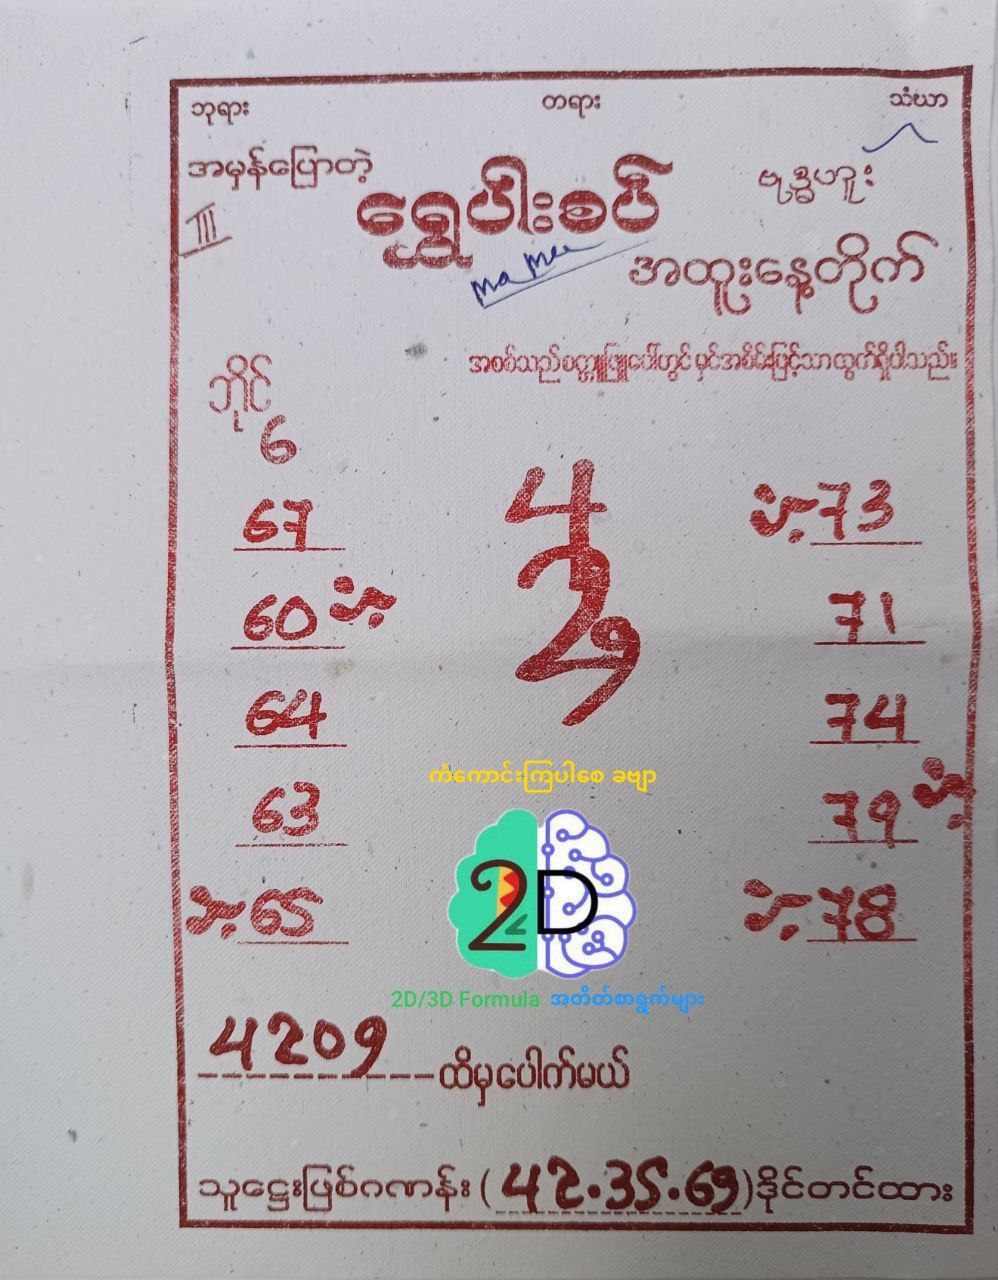 ဘုရား တရား သံဃာ
အမှန်ပြောတဲ့ ရွှေပေါးစပ် ဗုဒ္ဓဟူး
III
ma mee
အထူးနေ့တိုက်
အစစ်သည်စက္ကူဖြူပေါ်တွင် မှင်အစိမ်းဖြင့်သာထွက်ရှိပါသည်။
ဘိုင်
6
4
2
9
67
73
60
71
64
74
63
79
65
78
ကံကောင်းကြပါစေ ခဗျာ
2D
2D/3D Formula အတိတ်စာရွက်များ
4209 ထိမှပေါက်မယ်
သူဌေးဖြစ်ဂဏန်း (42.35.69) ဒိုင်တင်ထား